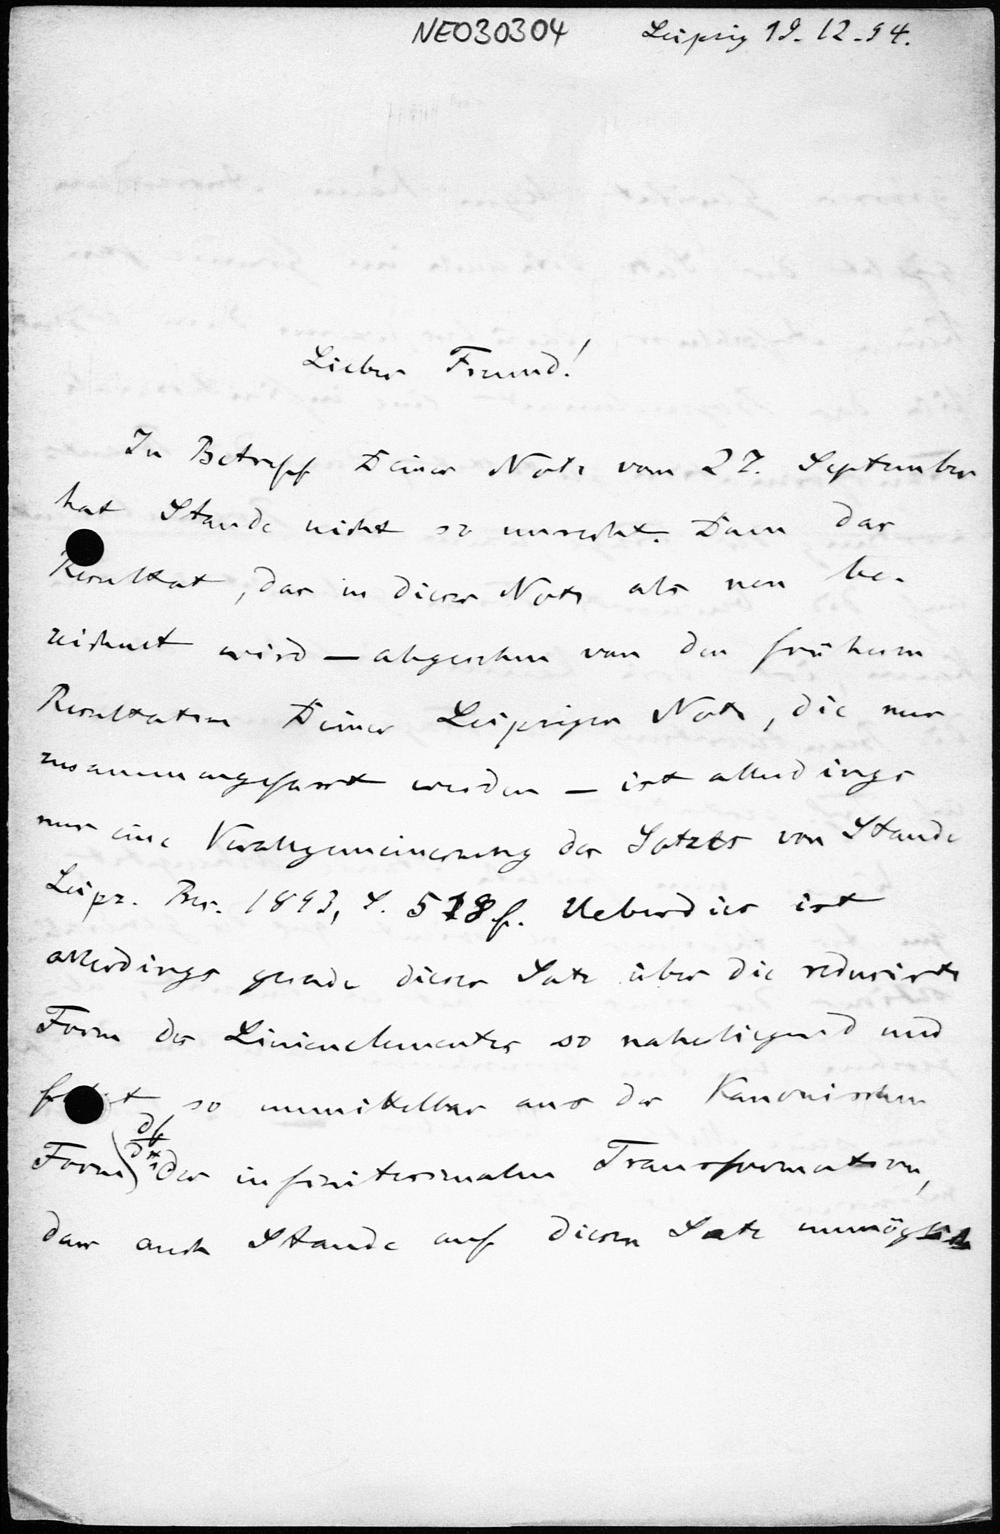 NE030304 Leipzig 19.12.94.
Lieber Freund!
In Betreff Deiner Note vom 27. September
hat Staude nicht so unrecht. Denn das
Resultat, das in dieser Note als neu be-
zeichnet wird — abgesehen von den früheren
Resultaten Deiner Leipziger Note, die nur
zusammengefasst werden — ist allerdings
nur eine Verallgemeinerung des Satzes von Staude
Leipz. Ber. 1893, S. 518 f. Ueberdies ist
allerdings gerade dieser Satz über die reducirte
Form des Linienelementes so naheliegend und
folgt so unmittelbar aus der kanonischen
Form (∂f/∂x₁) der infinitesimalen Transformation,
dass auch Staude auf diesen Satz unmöglich